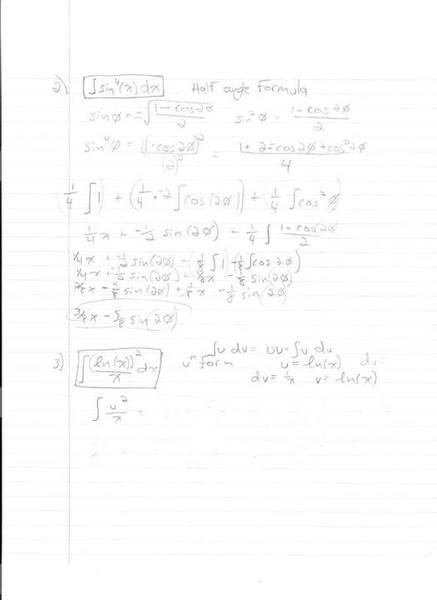 2) ∫sin⁴(x) dx Half angle formula
sin ø = ±√(1-cos2ø / 2) sin² ø = (1-cos 2ø) / 2
sin⁴ ø = (1-cos2ø)² / (2)² = (1 + 2-cos2ø + cos²2ø) / 4
(1/4 ∫1) + (1/4 · -2 ∫cos(2ø)) + (1/4 ∫cos² ø)
1/4 x + -1/2 sin(2ø) - 1/4 ∫ (1-cos(2ø)) / 2
1/4 x + -1/2 sin(2ø) - (1/8 ∫1) (-1/8 ∫cos 2ø)
1/4 x + -1/2 sin(2ø) + 1/8 x - 1/8 sin(2ø)
2/8 x - 4/8 sin(2ø) + 1/8 x - 1/8 sin(2ø)
3/8 x - 5/8 sin(2ø)
3) ∫ (ln(x))² / x dx uⁿ form ∫u dv = uv - ∫v du
u = ln(x) du
dv = 1/x v = ln(x)
∫ u² / x =